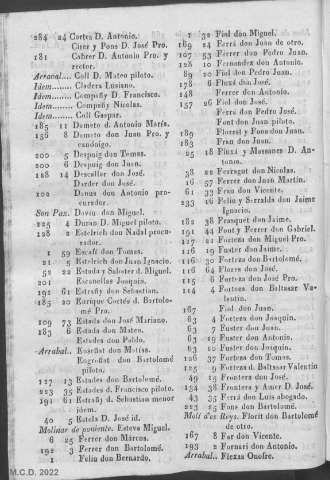 284 24 Cortes D. Antonio.
Cirer y Pons D. José Pro.
181 Cabrer D. Antonio Pro. y
rector.
Arrabal.... Coll D. Mateo piloto.
Idem....... Cladera Lusiano.
Idem....... Compañy D. Francisco.
Idem....... Compañy Nicolas.
Idem....... Coll Gaspar.
185 11 Dameto d. Antonio María.
156 8 Dameto don Juan Pro. y
canónigo.
200 5 Despuig don Tomas.
200 6 Despuig don Juan.
128 14 Descallar don José.
Darder don José.
102 Danus don Antonio procurador.
Son Pax. Daviu don Miguel.
225 4 Duran D. Miguel piloto.
128 2 Estelrich don Nadal procurador.
1 59 Escafí don Tomas.
21 5 Estelrich don Juan Ignacio.
52 22 Estada y Saloter d. Miguel.
201 Escanellas Joaquin.
191 61 Estrañy don Sebastian.
185 20 Enrique Cortés d. Bartolomé Pro.
109 73 Estada don José Mariano.
183 6 Estada don Mateo.
Estades don Pablo.
Arrabal.. Engrôat don Matías.
Engroñat don Bartolomé
piloto.
127 13 Estades don Bartolomé.
223 35 Estades d. Francisco piloto.
191 61 Estrañy d. Sebastian menor
idem.
40 5 Estela D. José id.
Molinar de poniente. Esteva Miguel.
6 25 Ferrer don Márcos.
192 3 Ferrer don Bartolomé.
1 Feliu don Bernardo.
1 30 Fiol don Miguel.
189 24 Ferrá don Juan de otro.
107 53 Ferrer don Pedro Juan.
128 10 Fernandez don Antonio.
89 20 Fiol don Pedro Juan.
178 6 Fluxá don José.
148 Ferrer don Antonio.
157 26 Fiol don José.
Ferrá don Pedro José.
Font don Juan piloto.
189 Florest y Fons don Juan.
183 Frau don Juan.
25 18 Fluxá y Massanes D. Antonio.
38 22 Ferragut don Nicolas.
16 57 Ferrer don Juan Martin.
61 37 Frau don Vicente.
233 16 Feliu y Serralda don Jaime
Ignacio.
181 38 Frasquet don Jaime.
191 44 Font y Ferrer don Gabriel.
127 21 Forteza don Miguel Pro.
126 19 Fuster don Jaime.
116 30 Forteza don Bartolomé.
116 64 Flores don José.
115 6 Forteza don José Pro.
114 4 Forteza don Baltasar Valentin.
167 Fiol don Juan.
63 4 Forteza don Joaquin.
63 7 Fuster don Juan.
63 19 Fuster don Antonio.
63 10 Fuster don Joaquin.
126 37 Forteza don Tomas.
125 9 Forteza d. Baltasar Valentin
49 15 Frontera don José.
134 38 Frontera y Amer D. José.
43 35 Ferrá don Luis abogado.
223 15 Fons don Bartolomé.
Molí d'es Reys. Florit don Bartolomé
de otro.
167 8 Far don Vicente.
93 1 Fornari don Antonio.
Arrabal.. Flexas Onofre.
M.C.D. 2022